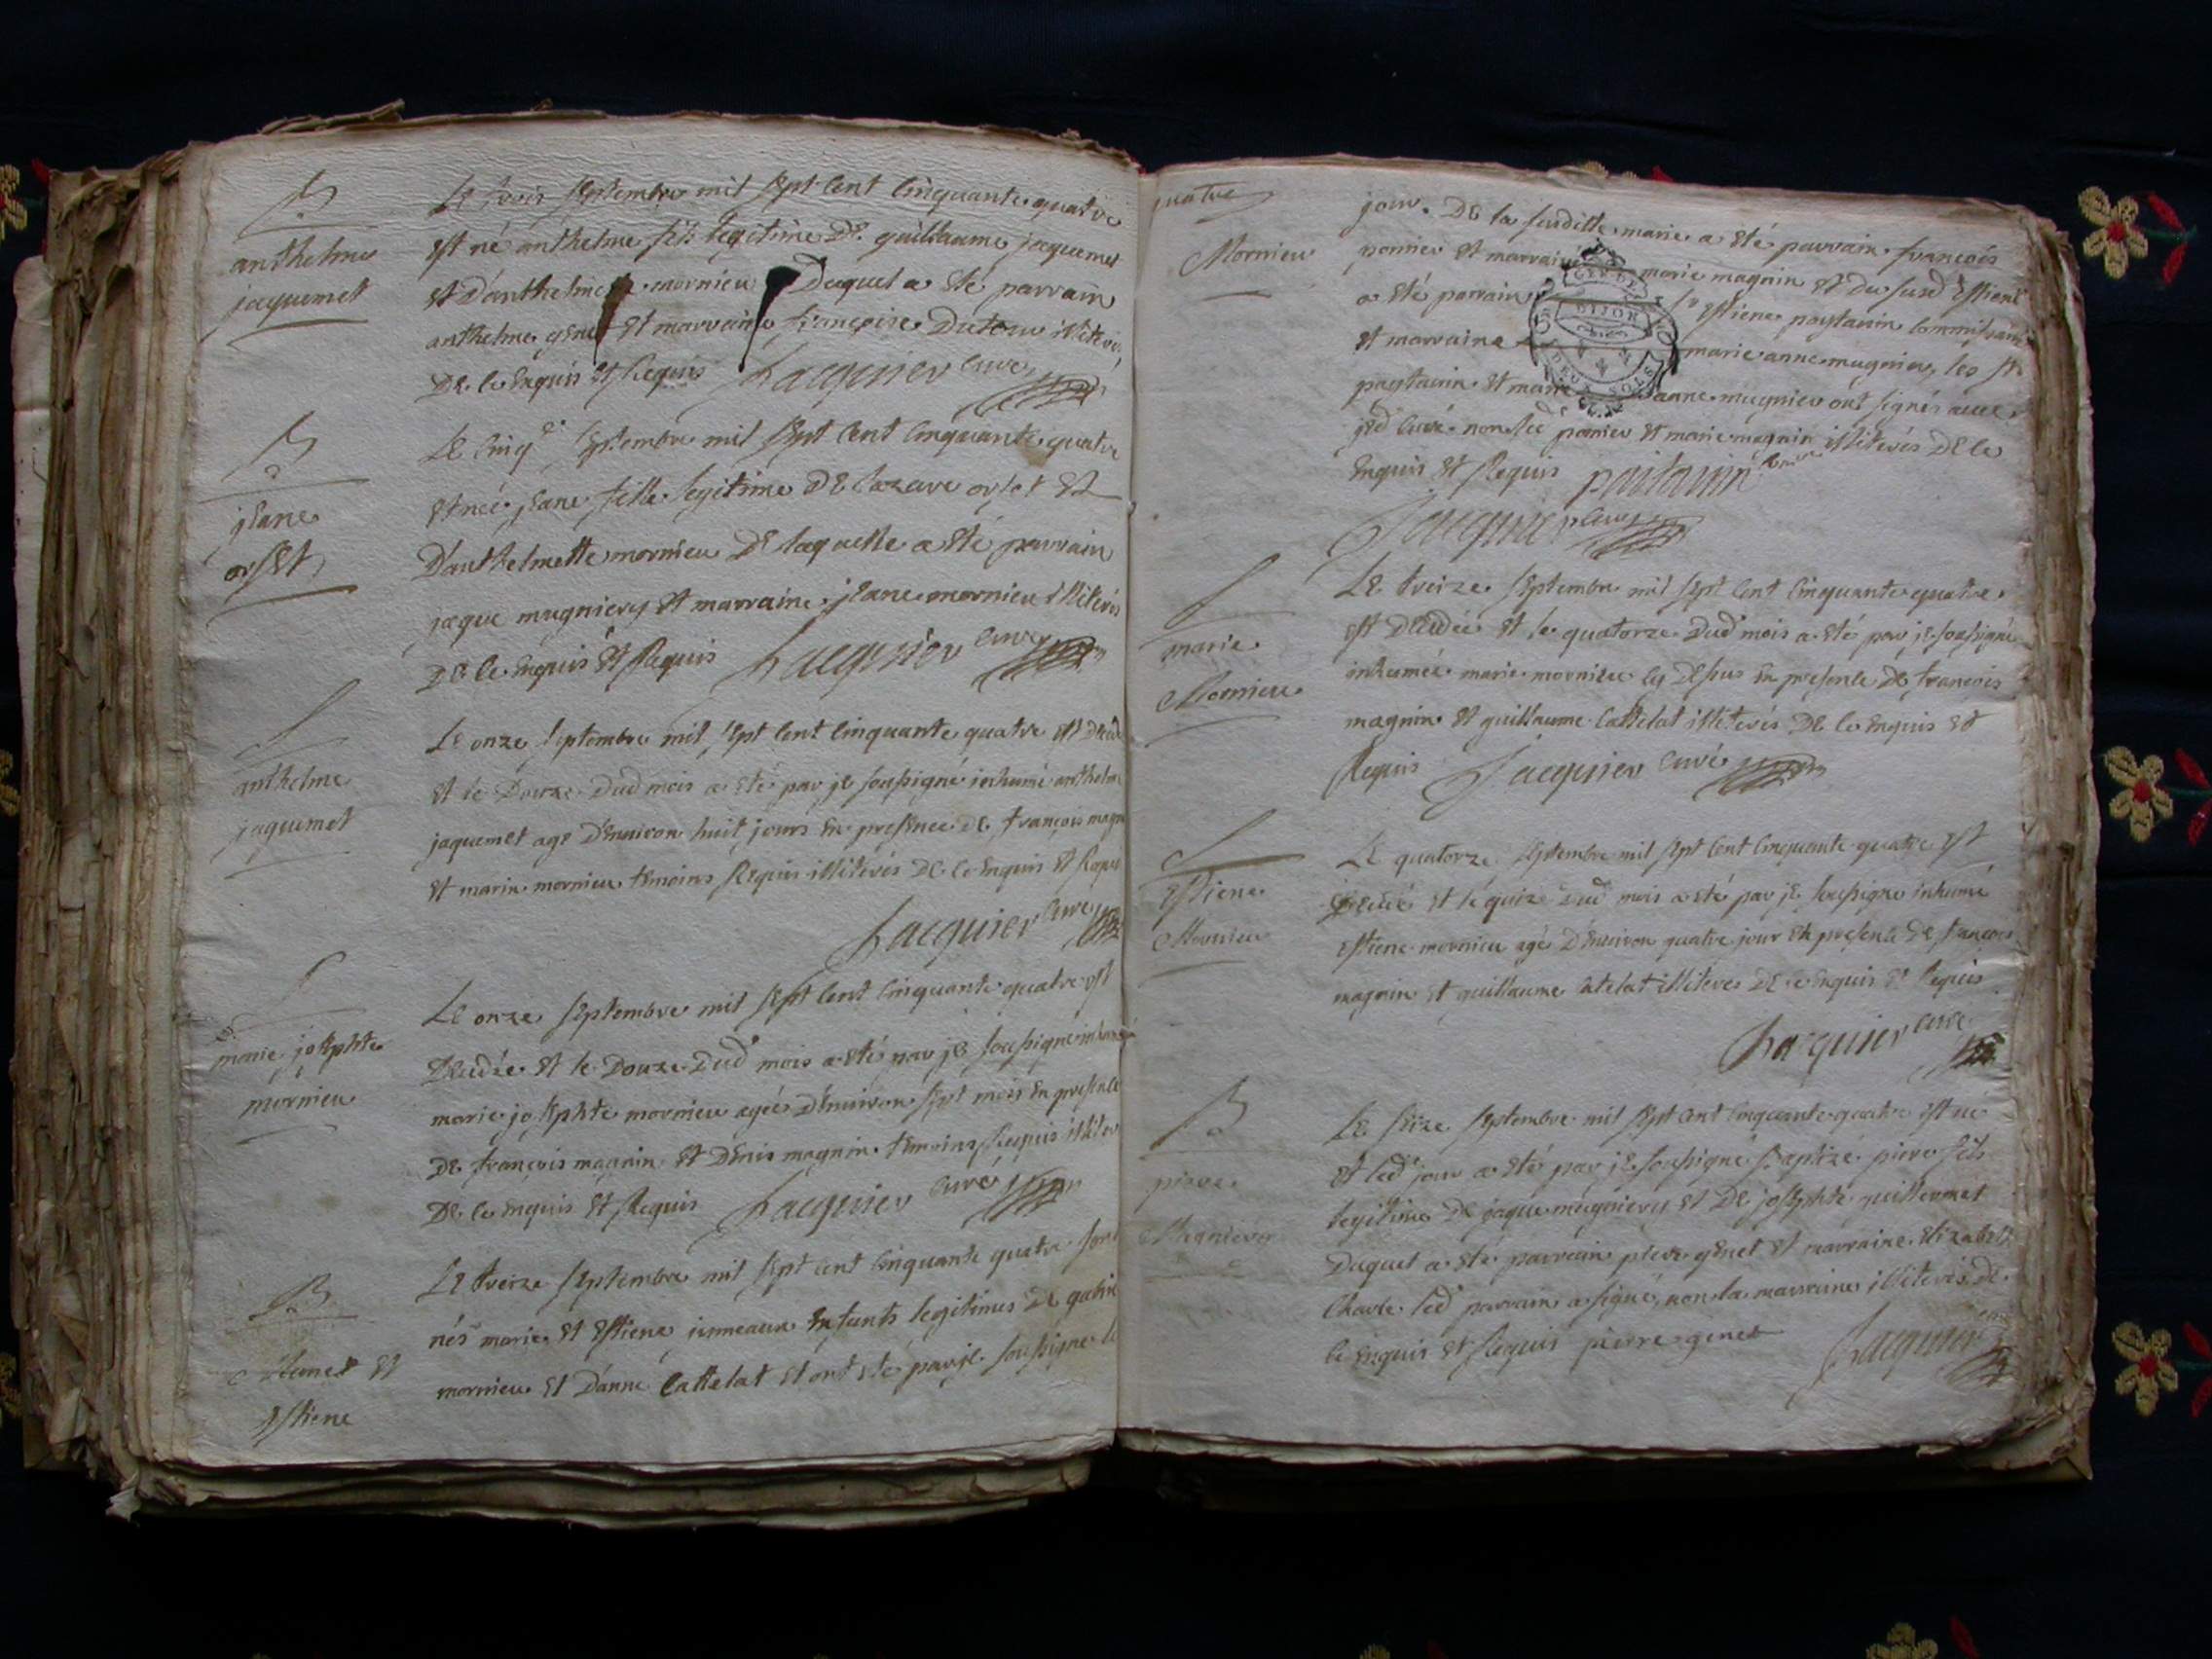 B
anthelme
jaquemet
Le trois septembre mil sept cent cinquante quatre
est né anthelme fils legitime de guillaume jaquemet
et d'anthelme mornieu Duquel a eté parrain
anthelme genet et marraine françoise Dutour illiterés
De ce enquis et Requis Jacquier curé
B
jeane
orset
Le cinq septembre mil sept cent cinquante quatre
est née jeane fille legitime De lazare orset et
D'anthelmette mornieu De laquelle a eté parrain
jaque mugniery et marraine jeane mornieu illiterés
De ce enquis et Requis Jacquier curé
S
anthelme
jaquemet
Le onze septembre mil sept cent cinquante quatre est decedé
et le Douze Dud mois a eté par je soussigné inhumé anthelme
jaquemet agé D'environ huit jours en presence de françois magnin
et marin mornieu temoins Requis illiterés De ce enquis et Requis
Jacquier curé
S
marie josephte
mornieu
Le onze septembre mil sept cent cinquante quatre est
Decedée et le Douze Dud mois a eté par je soussigné inhumé
marie josephte mornieu agée D'environ sept mois en presence
De françois magnin et Denis magnin temoins Requis illiterés
De ce enquis et Requis Jacquier curé
B
et
Estiene
Le treize septembre mil sept cent cinquante quatre sont
nés marie et Estiene jumeaux enfants legitimes De
mornieu et D'anne Cattelat et ont eté par je soussigné
quatre
Mornieu
jour. De la susditte marie a eté parrain françois
ponnier et marraine marie magnin et du susd Estiene
a eté parrain Sr Estiene paytavin
et marraine marie anne mugnier, les Sr
paytavin et marie anne mugnier ont signés avec
jed curé non led ponnier et marie magnin illiterés De ce
Enquis et Requis paitavin
Jacquier curé
S
marie
Mornieu
Le treize septembre mil sept cent cinquante quatre
est Decedée et le quatorze Dud mois a eté par je soussigné
inhumée marie mornieu cy Dessus en presence De françois
magnin et guillaume Cattelat illiterés De ce enquis et
Requis Jacquier curé
S
Estiene
Mornieu
Le quatorze septembre mil sept cent cinquante quatre est
Decedé et le quinze Dud mois a eté par je soussigné inhumé
Estiene mornieu agé D'environ quatre jour en presence De francois
magnin et guillaume Catelat illiteres De ce enquis et Requis
Jacquier curé
B
piere
Mugniery
Le seize septembre mil sept cent cinquante quatre est né
et led jour a eté par je soussigné Baptizé piere fils
legitime De jaque mugniery et De josephte guillermet
Duquel a eté parrain piere genet et marraine elizabeth
Charle led parrain a signé, non la marraine illiterés De
ce enquis et Requis pierre genet
Jacquier curé
GEN. DE
DIJON
DEUX SOLS